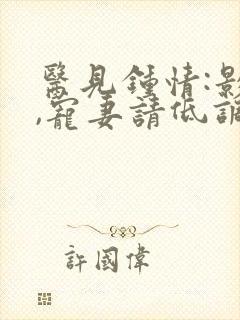 醫見鍾情:影
,寵妻請低調
許國偉